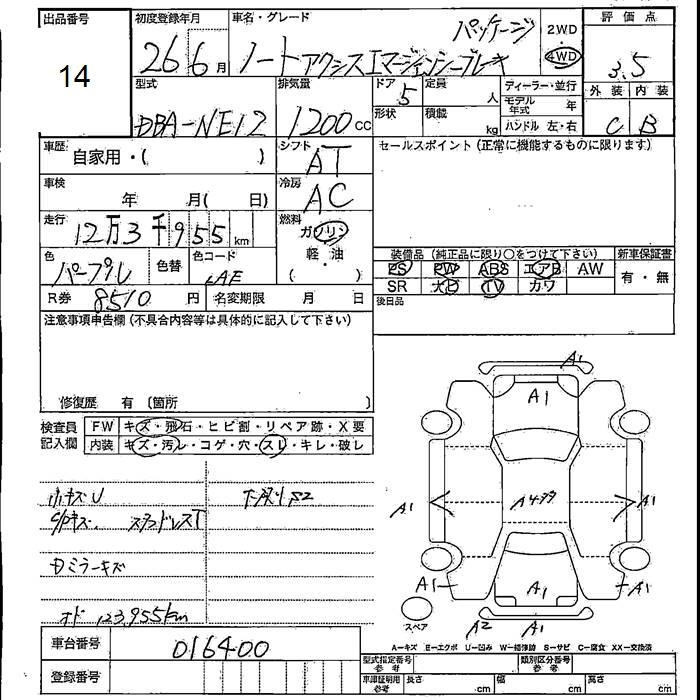 出品番号 初度登録年月 車名・グレード 評価点
14 26 6月 ノート アクシスエマージェンシーブレーキ パッケージ 2WD 4WD 3.5
型式 排気量 ドア 定員 ディーラー・並行 外装 内装
DBA-NE12 1200cc 5 人 モデル年式 年 C B
形状 積載 kg ハンドル 左・右
車歴 自家用・( ) シフト AT セールスポイント (正常に機能するものに限ります)
車検 年 月(日) 冷房 AC
走行 12万3千955km 燃料 ガソリン
色 パープル 色替 色コード LAE 軽・油 ( )
装備品 (純正品に限り○をつけて下さい) 新車保証書
PS PW ABS エアB AW 有・無
SR ナビ TV カワ
R券 8510円 名変期限 月 日 後日品
注意事項申告欄 (不具合内容等は具体的に記入して下さい)
修復歴 有 〔箇所 〕
検査員記入欄 FW キズ・飛石・ヒビ割・リペア跡・X要
内装 キズ・汚レ・コゲ・穴・スレ・キレ・破レ
小キズU S2
スタッドレスT
ミラーキズ
オド 123,955km
A1
A1
A1 A1
A1 A1
A1
A2 A1
スペア
A-キズ E-エクボ U-凹み W-補修跡 S-サビ C-腐食 XX-交換済
車台番号 016400
登録番号
型式指定番号 参考 類別区分番号 参考
車庫証明用 参考 長さ cm 幅 cm 高さ cm